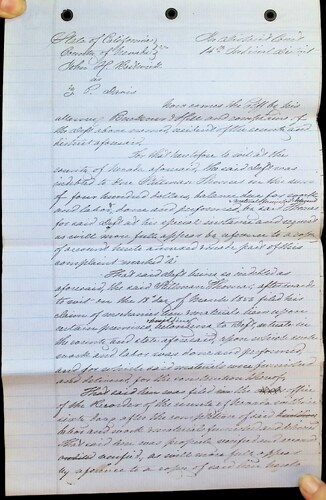 State of California, In District Court
County of Nevada 14th Judicial District
John H
vs
Z. P. Davis
Now comes the Plff by his
attorney and complains of
the deft above named, resident of the county and
district aforesaid.
For that heretofore to wit at the
county of Nevada aforesaid, the said deft was
indebted to one Thomas in the sum
of four hundred dollars, balance due for work
and labor, done and performed by said Thomas
and materials furnished
for said deft at his special instance and request
as will more fully appear by reference to a copy
of account hereto annexed & made part of this
complaint marked A
That said deft being so indebted as
aforesaid, the said Thomas, afterwards
to wit on the 18 day of March 185 filed his
claim of mechanics lien & materials lien upon
certain premises, belonging to deft situate in
the county and state aforesaid, upon which
work and labor was done and performed,
and for which said materials were furnished
and for the construction thereof.
That said lien was filed in the office
of the Recorder of the county of Nevada within
sixty days after the completion of said
labor and work & materials furnished and
that said lien was properly verified and
verified, as will more fully appear
by reference to a copy of said lien hereto